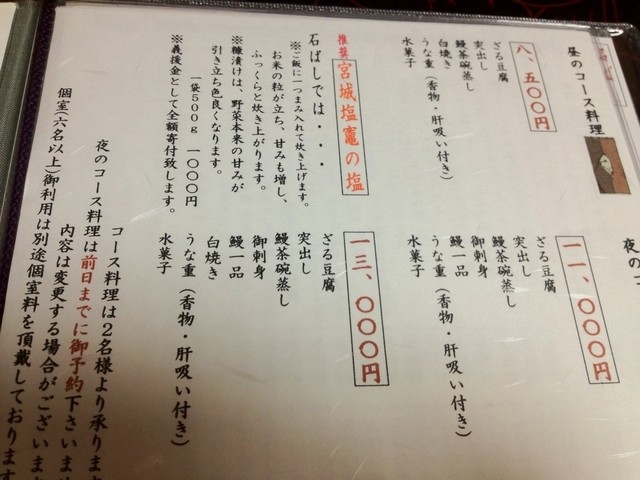 昼のコース料理
八、五〇〇円
ざる豆腐
突出し
鰻茶碗蒸し
白焼き
うな重（香物・肝吸い付き）
水菓子
推奨 宮城塩竈の塩
石ばしでは・・・
※ご飯に一つまみ入れて炊き上げます。
お米の粒が立ち、甘みも増し、
ふっくらと炊き上がります。
※糠漬けは、野菜本来の甘みが
引き立ち色良くなります。
一袋500g 一〇〇〇円
※義援金として全額寄付致します。
夜の
一一、〇〇〇円
ざる豆腐
突出し
鰻茶碗蒸し
御刺身
鰻一品
うな重（香物・肝吸い付き）
水菓子
一三、〇〇〇円
ざる豆腐
突出し
鰻茶碗蒸し
御刺身
鰻一品
白焼き
うな重（香物・肝吸い付き）
水菓子
コース料理は2名様より承りま
夜のコース料理は前日までに御予約下さいま
内容は変更する場合がございま
個室（六名以上）御利用は別途個室料を頂戴しております